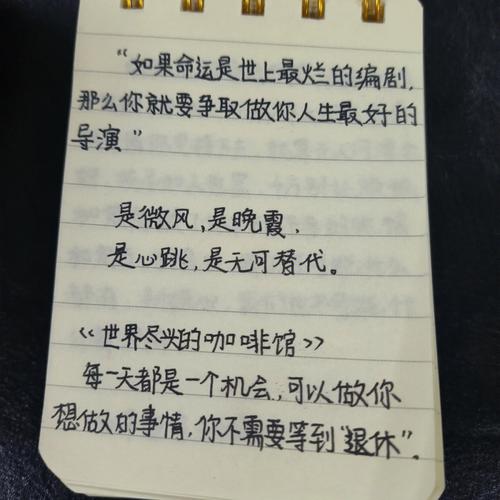 “如果命运是世上最烂的编剧,
那么你就要争取做你人生最好的
导演”
是微风,是晚霞,
是心跳,是无可替代。
<<世界尽兴的咖啡馆>>
每一天都是一个机会,可以做你
想做的事情,你不需要等到“退休”。